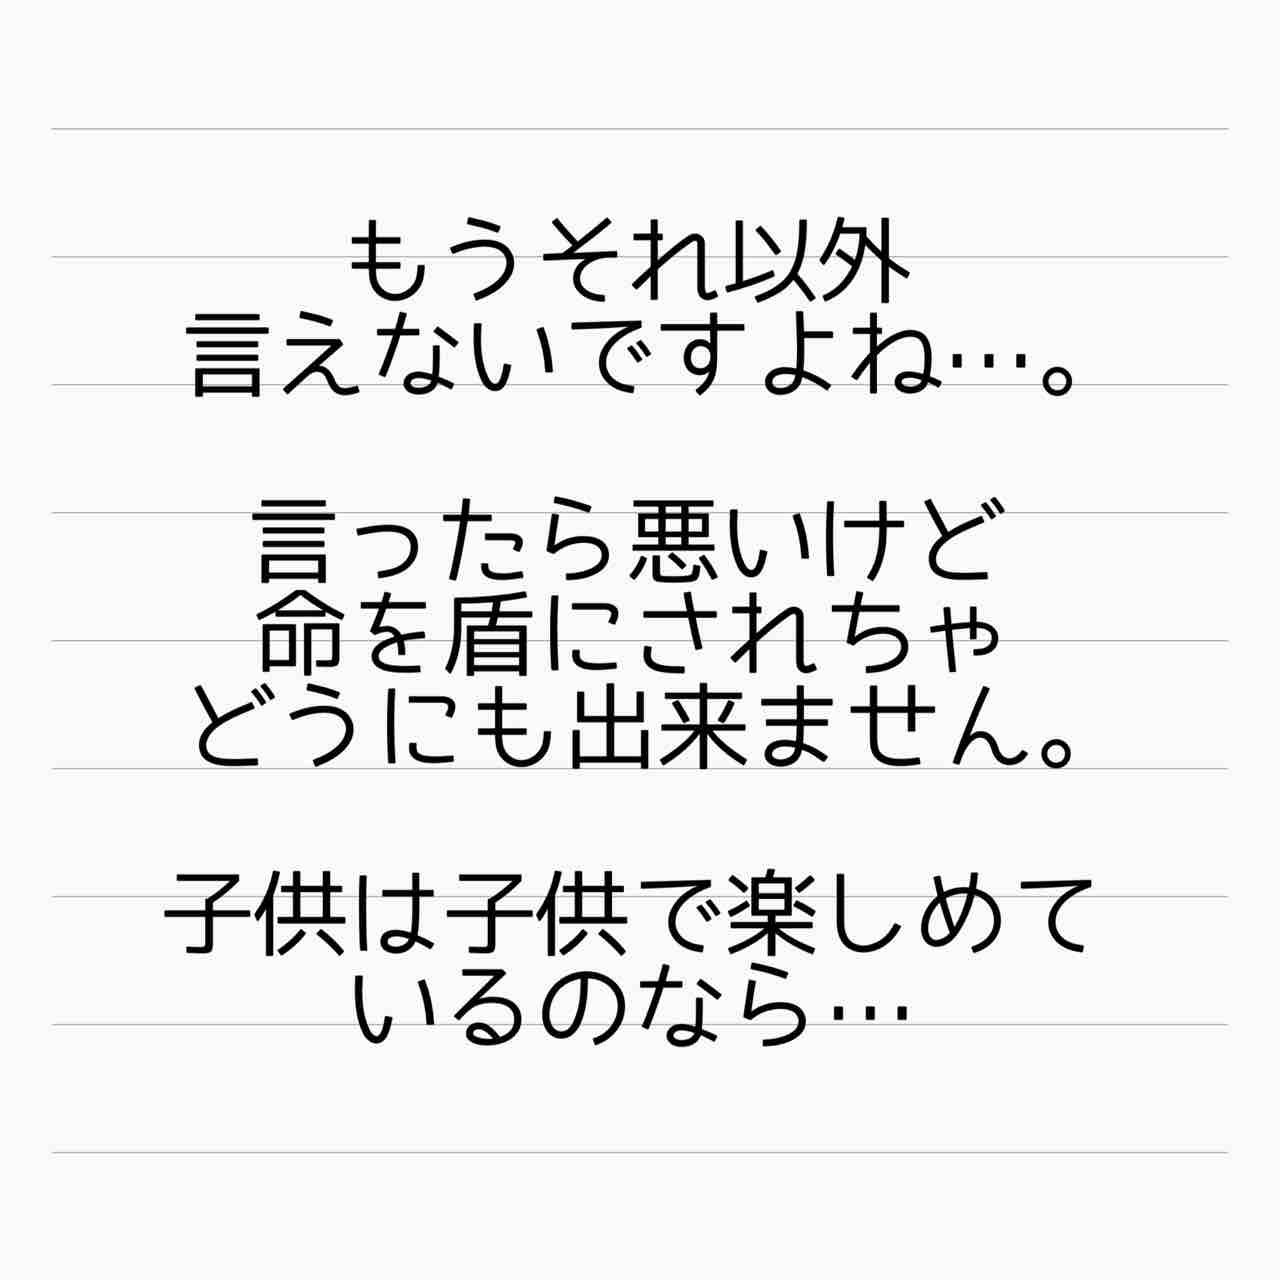 もうそれ以外
言えないですよね…。
言ったら悪いけど
命を盾にされちゃ
どうにも出来ません。
子供は子供で楽しめて
いるのなら…